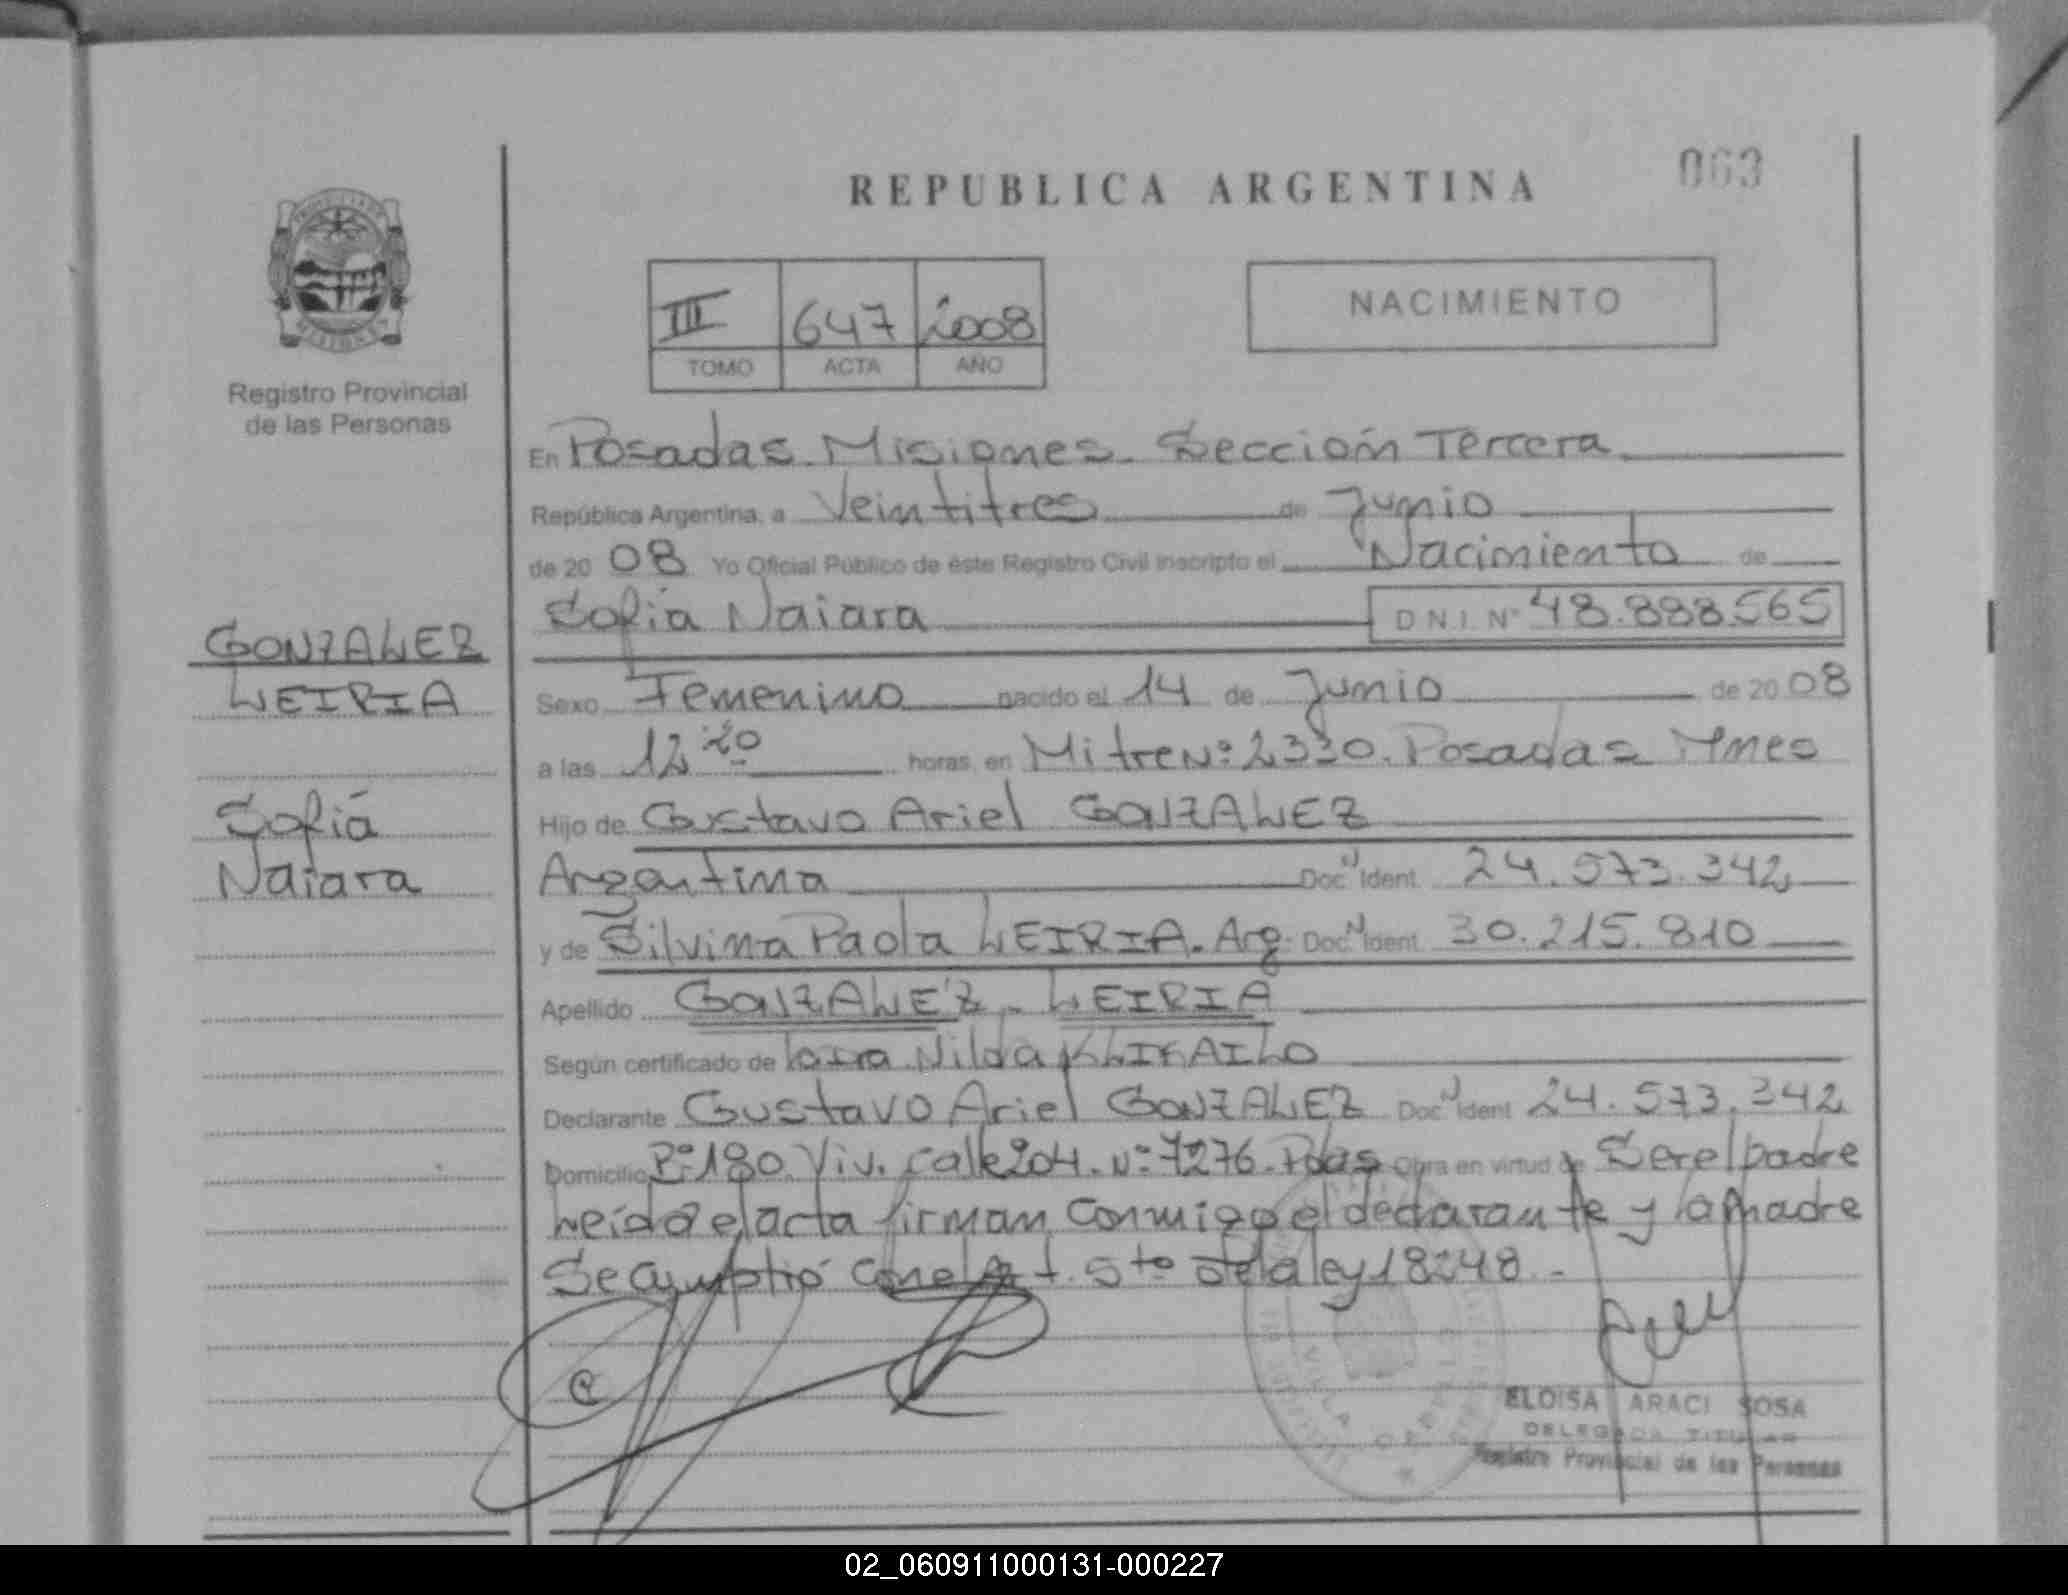 063
REPUBLICA ARGENTINA
III 647 2008
TOMO ACTA AÑO
NACIMIENTO
Registro Provincial
de las Personas
GONZALEZ
LEIRIA
Sofiá
Naiara
En Posadas. Misiones. Sección Tercera
República Argentina, a Veintitres de Junio
de 20 08 Yo Oficial Público de éste Registro Civil inscripto el Nacimiento de
Sofia Naiara D.N.I. Nº 48.888.565
Sexo Femenino nacido el 14 de Junio de 20 08
a las 12:20 horas, en Mitre Nº: 2330. Posadas Mnes
Hijo de Gustavo Ariel GONZALEZ
Argentina Doc. Ident. 24.573.342
y de Silvina Paola LEIRIA. Arg. Doc. Ident. 30.215.810
Apellido GONZALEZ - LEIRIA
Según certificado de Nilda KLIKAILO
Declarante Gustavo Ariel GONZALEZ Doc. Ident. 24.573.342
Domicilio Bº: 180. Viv. calle 204. Nº: 7276. Pdas Obra en virtud de Ser el padre
Leída el acta firman conmigo el declarante y la madre
Se cumplió con el Art. 5to de la ley 18248.-
ELOISA ARACI SOSA
DELEGADA TITULAR
Registro Provincial de las Personas
02_060911000131-000227